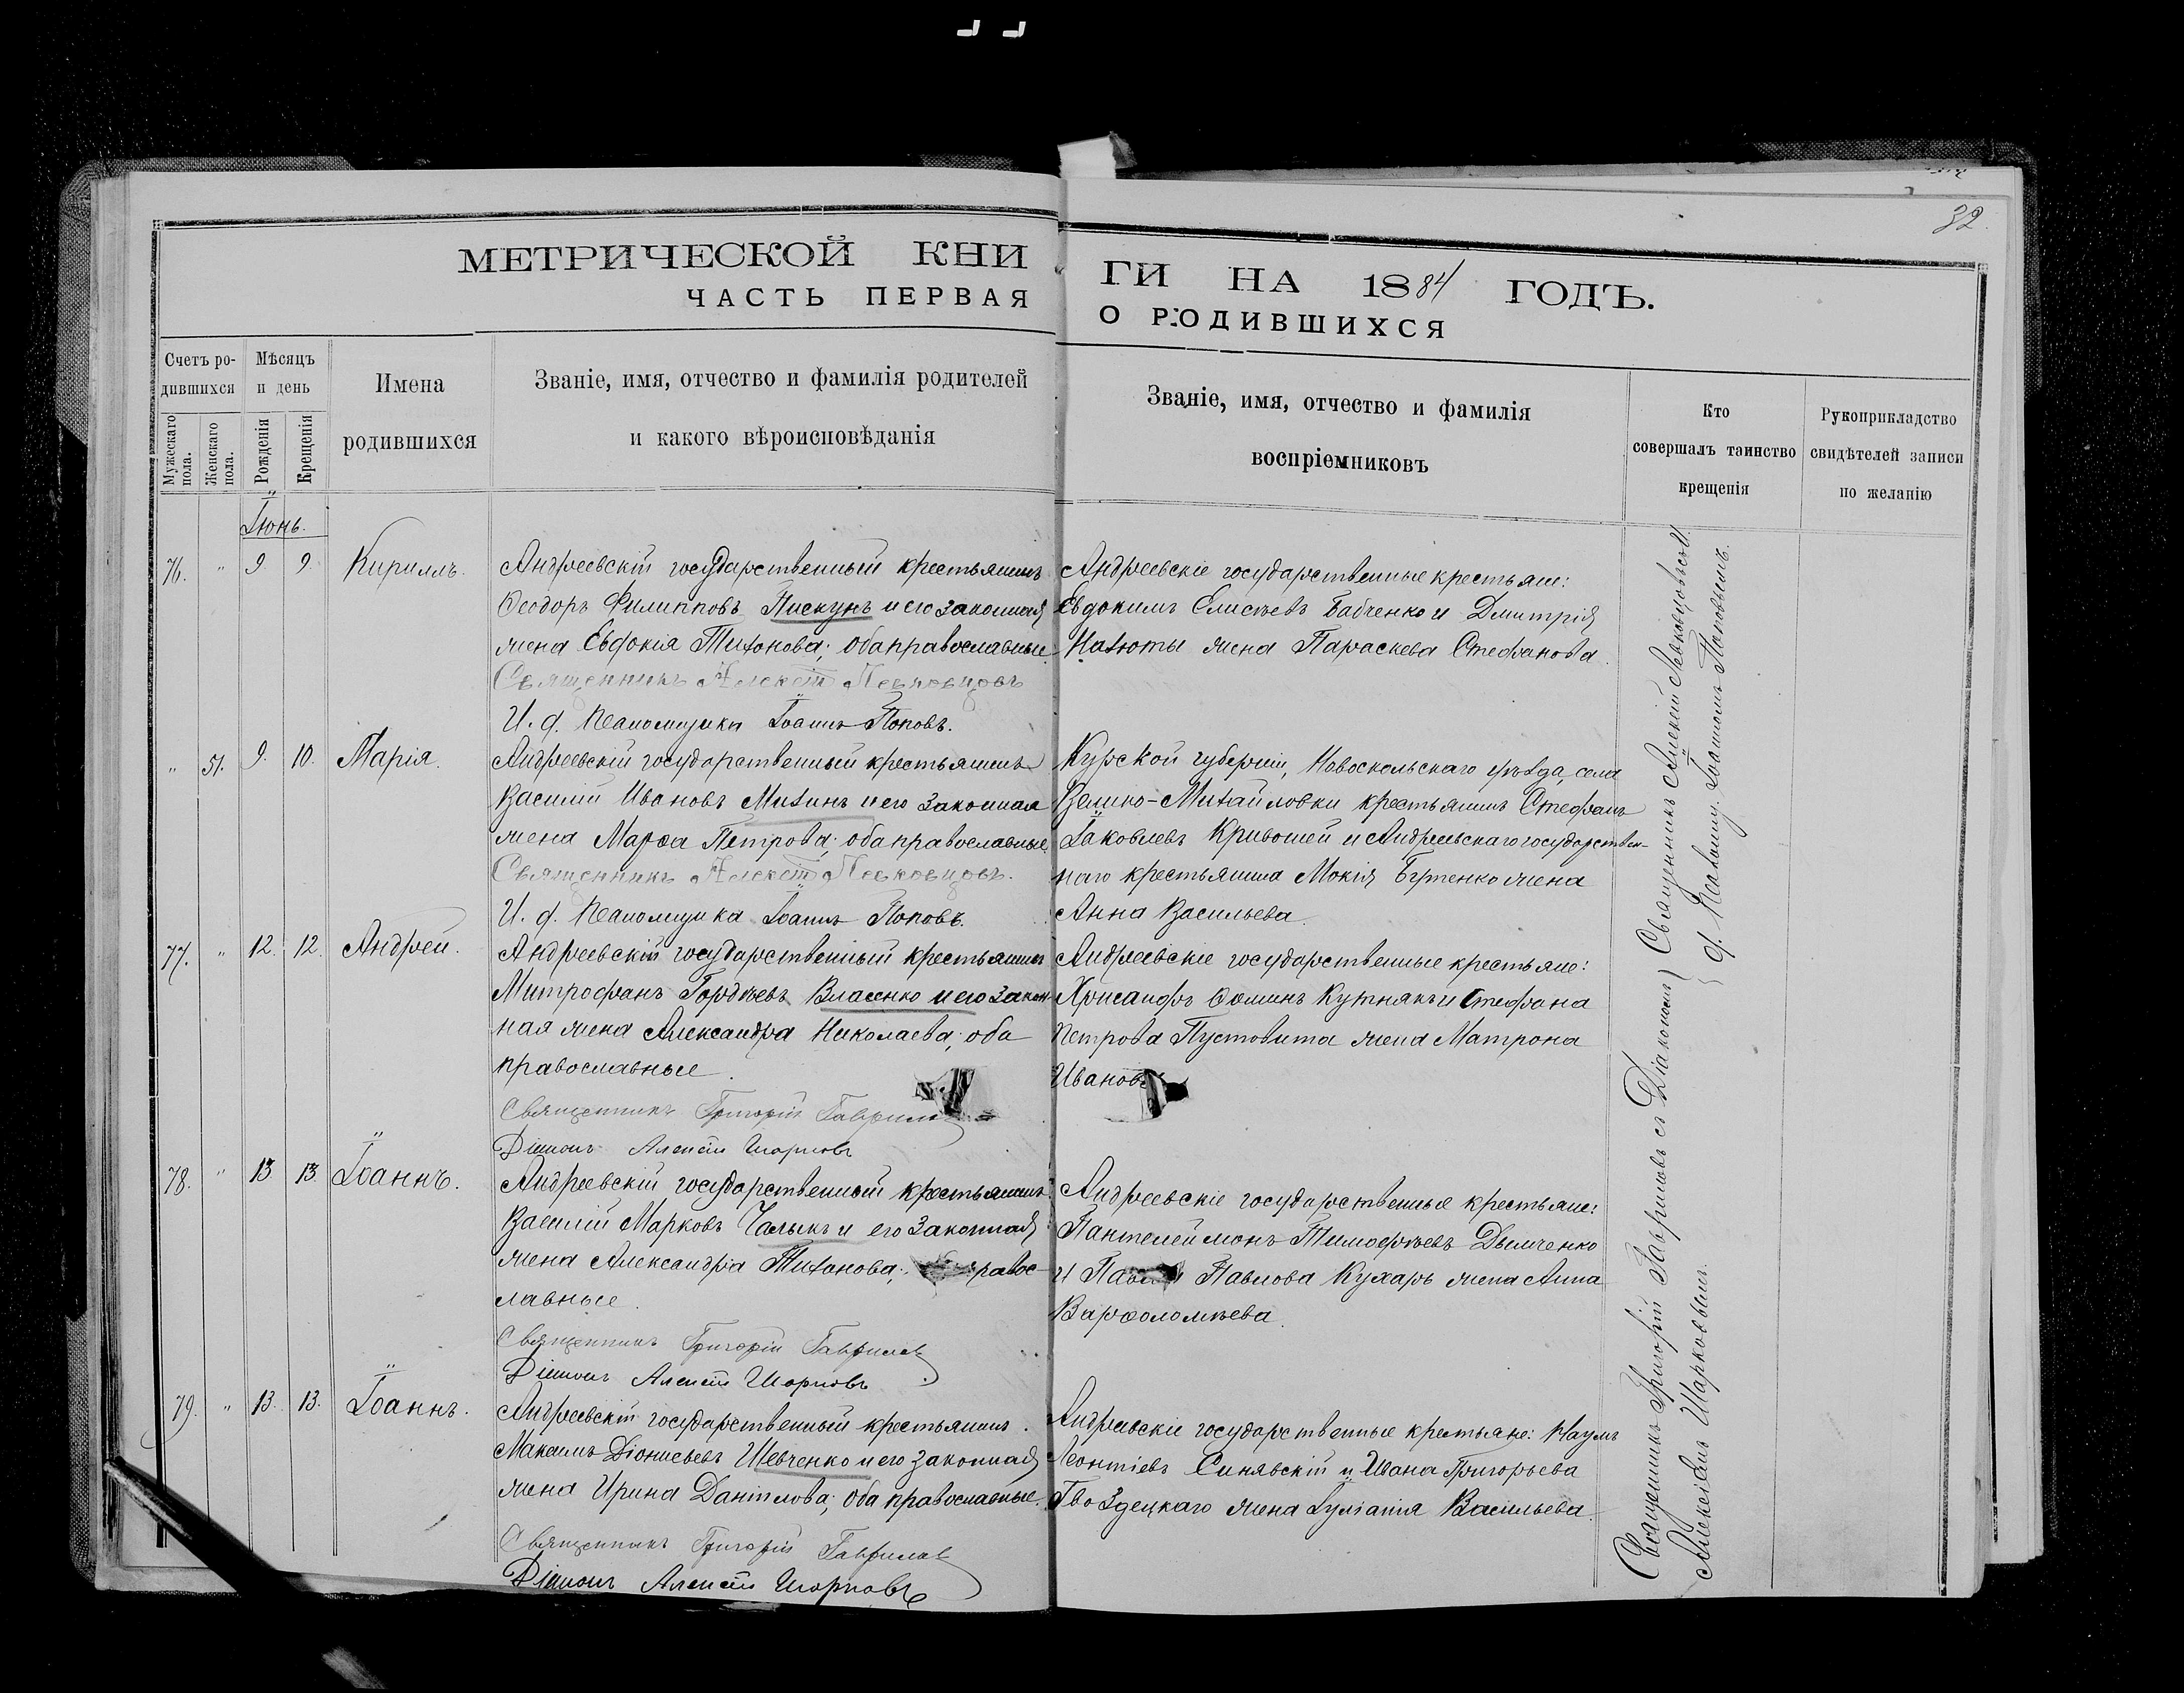 32.
МЕТРИЧЕСКОЙ КНИ
ГИ НА 1884 ГОДЪ.
ЧАСТЬ ПЕРВАЯ
О РОДИВШИХСЯ
Счетъ ро-
дившихся
Мужескаго
пола.
Женскаго
пола.
Мѣсяцъ
и день
Рожденія
Крещенія
Имена
родившихся
Званіе, имя, отчество и фамилія родителей
и какого вѣроисповѣданія
Званіе, имя, отчество и фамилія
воспріемниковъ
Кто
совершалъ таинство
крещенія
Рукоприкладство
свидѣтелей записи
по желанію
Іюнь.
76. " 9. 9. Кириллъ.
Андреевскій государственный крестьянинъ
Ѳеодоръ Филипповъ Пискунъ и его законная
жена Евдокія Тихонова; оба православные.
Священникъ Алексій Левковцовъ
И. д. Псаломщика Іоаннъ Поповъ.
Андреевскіе государственные крестьяне:
Евдокимъ Елисѣевъ Бабченко и Дмитрія
жена Параскева Стефанова.
" 51. 9. 10. Марія.
Андреевскій государственный крестьянинъ
Василій Ивановъ Михинъ и его законная
жена Марѳа Петрова; оба православные.
Священникъ Алексій Левковцовъ.
И. д. Псаломщика Іоаннъ Поповъ.
Курской губерніи, Новоскольскаго уѣзда, села
Велико-Михайловки крестьянинъ Стефанъ
Іаковлевъ Кривошей и Андреевскаго государствен-
наго крестьянина Мокія Бутенко жена
Анна Васильева.
77. " 12. 12. Андрей.
Андреевскій государственный крестьянинъ
Митрофанъ Гордѣевъ Власенко и его закон-
ная жена Александра Николаева; оба
православные.
Священникъ Григорій Гавриловъ
Діаконъ Алексій Шарковъ
Андреевскіе государственные крестьяне:
Хрисанфъ Ѳоминъ Кутнякъ и Стефана
Петрова Пустовита жена Матрона
Иванова
78. " 13. 13. Іоаннъ.
Андреевскій государственный крестьянинъ
Василій Марковъ Чалыкъ и его законная
жена Александра Тихонова; правос-
лавные.
Священникъ Григорій Гавриловъ
Діаконъ Алексій Шарковъ
Андреевскіе государственные крестьяне:
Пантелеймонъ Тимофѣевъ Дымченко
и Павла Павлова Кухаръ жена Анна
Варѳоломѣева.
79. " 13. 13. Іоаннъ.
Андреевскій государственный крестьянинъ
Максимъ Діонисьевъ Шевченко и его законная
жена Ирина Даніилова; оба православные.
Священникъ Григорій Гавриловъ
Діаконъ Алексій Шарковъ
Андреевскіе государственные крестьяне: Наумъ
Леонтіевъ Синявскій и Ивана Григорьева
Гвоздецкаго жена Іуліанія Васильева.
Священникъ Алексій Левковцовъ съ И.
д. Псаломщ. Іоанномъ Поповымъ.
Священникъ Григорій Гавриловъ съ Діакономъ
Алексіемъ Шарковымъ.